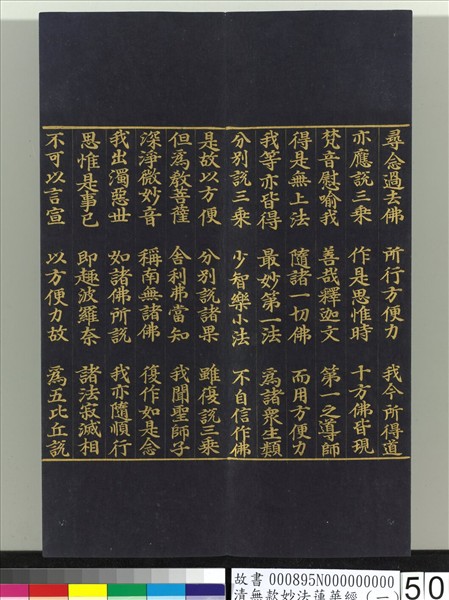 尋念過去佛　所行方便力　我今所得道
亦應說三乘　作是思惟時　十方佛皆現
梵音慰喻我　善哉釋迦文　第一之導師
得是無上法　隨諸一切佛　而用方便力
我等亦皆得　最妙第一法　為諸衆生類
分別說三乘　少智樂小法　不自信作佛
是故以方便　分別說諸果　雖復說三乘
但為教菩薩　舍利弗當知　我聞聖師子
深淨微妙音　稱南無諸佛　復作如是念
我出濁惡世　如諸佛所說　我亦隨順行
思惟是事已　即趣波羅奈　諸法寂滅相
不可以言宣　以方便力故　為五比丘說
故書 000895N000000000
清無款妙法蓮華經（一）
50